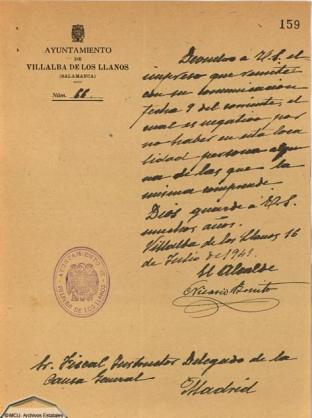 159
AYUNTAMIENTO
DE
VILLALBA DE LOS LLANOS
(SALAMANCA)
Núm. 66
Devuelvo a V.S. el
impreso que remite
con su comunicacion
fecha 9 del corriente, el
cual es negativo por
no haber en esta loca
lidad persona algu
na de las que la
misma comprende.
Dios guarde á V.S.
muchos años.
Villalba de los Llanos 16
de Julio de 1941
El Alcalde
Nicasio Benito
AYUNTAMIENTO DE
VILLALBA DE LOS LLANOS
Sr. Fiscal Instructor Delegado de la
Causa General
Madrid
©MCU. Archivos Estatales